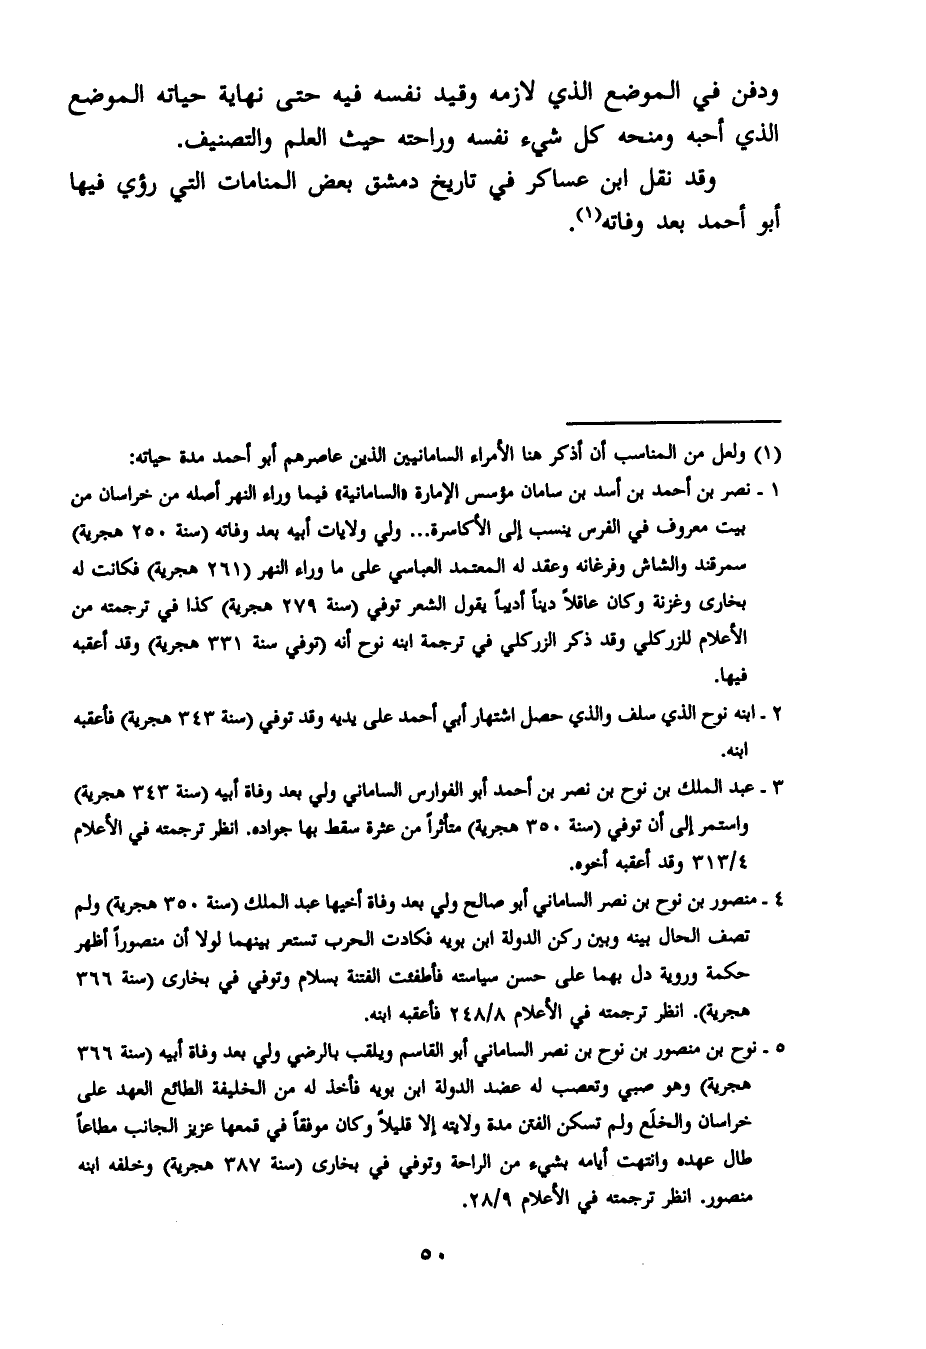 ودفن في الموضع الذي لازمه وقيد نفسه فيه حتى نهاية حياته الموضع
الذي أحبه ومنحه كل شيء نفسه وراحته حيث العلم والتصنيف.
وقد نقل ابن عساكر في تاريخ دمشق بعض المنامات التي رؤي فيها
أبو أحمد بعد وفاته(١).
(١) ولعل من المناسب أن أذكر هنا الأمراء السامانيين الذين عاصرهم أبو أحمد مدة حياته:
١ ـ نصر بن أحمد بن أسد بن سامان مؤسس الإمارة «السامانية» فيما وراء النهر أصله من خراسان من
بيت معروف في الفرس ينسب إلى الأكاسرة... ولي ولايات أبيه بعد وفاته (سنة ٢٥٠ هجرية)
سمرقند والشاش وفرغانه وعقد له المعتمد العباسي على ما وراء النهر (٢٦١ هجرية) فكانت له
بخارى وغزنة وكان عاقلاً ديناً أديباً يقول الشعر توفي (سنة ٢٧٩ هجرية) كذا في ترجمته من
الأعلام للزركلي وقد ذكر الزركلي في ترجمة ابنه نوح أنه (توفي سنة ٣٣١ هجرية) وقد أعقبه
فيها.
٢ ـ ابنه نوح الذي سلف والذي حصل اشتهار أبي أحمد على يديه وقد توفي (سنة ٣٤٣ هجرية) فأعقبه
ابنه.
٣ ـ عبد الملك بن نوح بن نصر بن أحمد أبو الفوارس الساماني ولي بعد وفاة أبيه (سنة ٣٤٣ هجرية)
واستمر إلى أن توفي (سنة ٣٥٠ هجرية) متأثراً من عثرة سقط بها جواده. انظر ترجمته في الأعلام
٣١٣/٤ وقد أعقبه أخوه.
٤ ـ منصور بن نوح بن نصر الساماني أبو صالح ولي بعد وفاة أخيها عبد الملك (سنة ٣٥٠ هجرية) ولم
تصف الحال بينه وبين ركن الدولة ابن بويه فكادت الحرب تستعر بينهما لولا أن منصوراً أظهر
حكمة وروية دل بهما على حسن سياسته فأطفئت الفتنة بسلام وتوفي في بخارى (سنة ٣٦٦
هجرية). انظر ترجمته في الأعلام ٢٤٨/٨ فأعقبه ابنه.
٥ ـ نوح بن منصور بن نوح بن نصر الساماني أبو القاسم ويلقب بالرضي ولي بعد وفاة أبيه (سنة ٣٦٦
هجرية) وهو صبي وتعصب له عضد الدولة ابن بويه فأخذ له من الخليفة الطائع العهد على
خراسان والخلَع ولم تسكن الفتن مدة ولايته إلا قليلاً وكان موفقاً في قمعها عزيز الجانب مطاعاً
طال عهده وانتهت أيامه بشيء من الراحة وتوفي في بخارى (سنة ٣٨٧ هجرية) وخلفه ابنه
منصور. انظر ترجمته في الأعلام ٢٨/٩.
٥٠